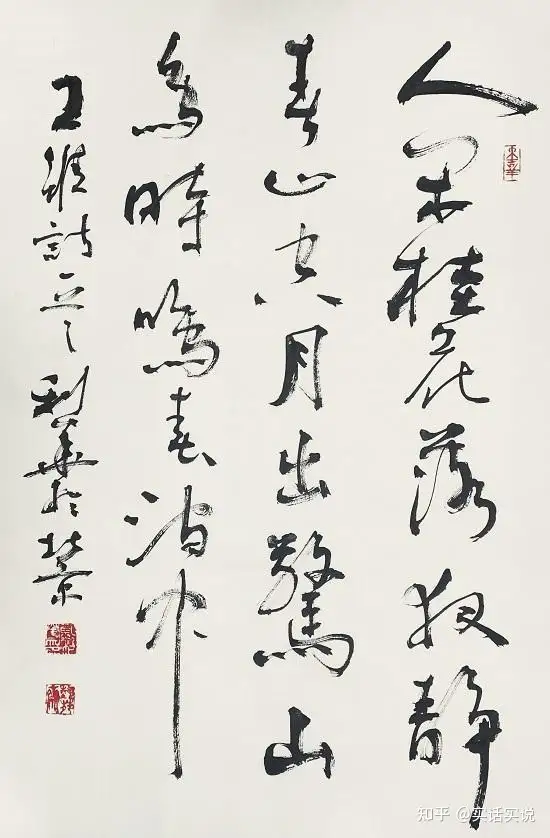 人閑桂花落夜静
春山空月出驚山
鳥時鳴春澗中
王維詩一首 利華於北京
知乎 @实话实说